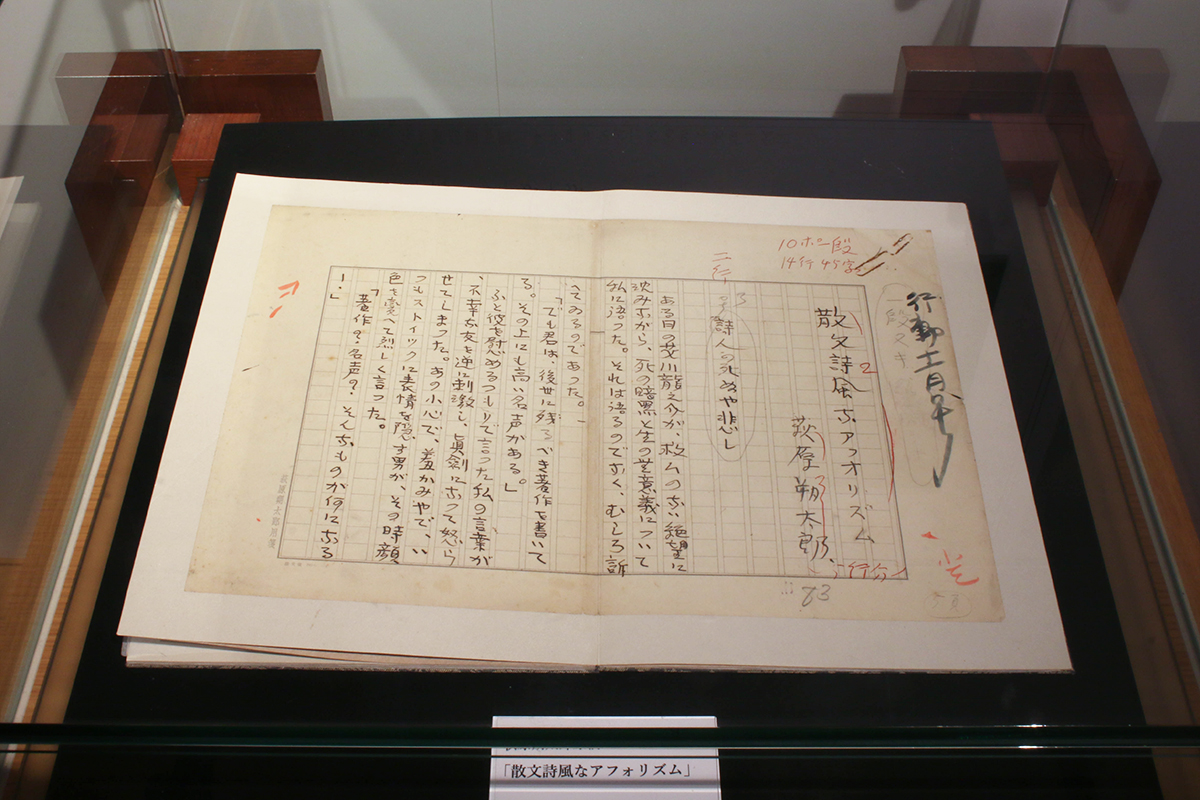 行動十二月号
10ポ一段
14行45字
散文詩風な、アフォリズム
2
萩原朔太郎、
一行分
二行
詩人の死ぬや悲し
ある日の芥川龍之介が、救ひのない絶望に
沈みながら、死の暗黒と生の無意義について
私に語つた。それは語るのでなく、むしろ訴
へてゐるのであつた。
「でも君は、後世に残るべき著作を書いて
る。その上にも高い名声がある。」
ふと彼を慰めるつもりで言つた私の言葉が
、不幸な友を逆に刺激し、眞剣になつて怒ら
せてしまつた。あの小心で、羞かみやで、い
つもストイツクに表情を隠す男が、その時顔
色を変へて烈しく言つた。
「著作？名声？そんなものが何になる
！」
83
「散文詩風なアフォリズム」